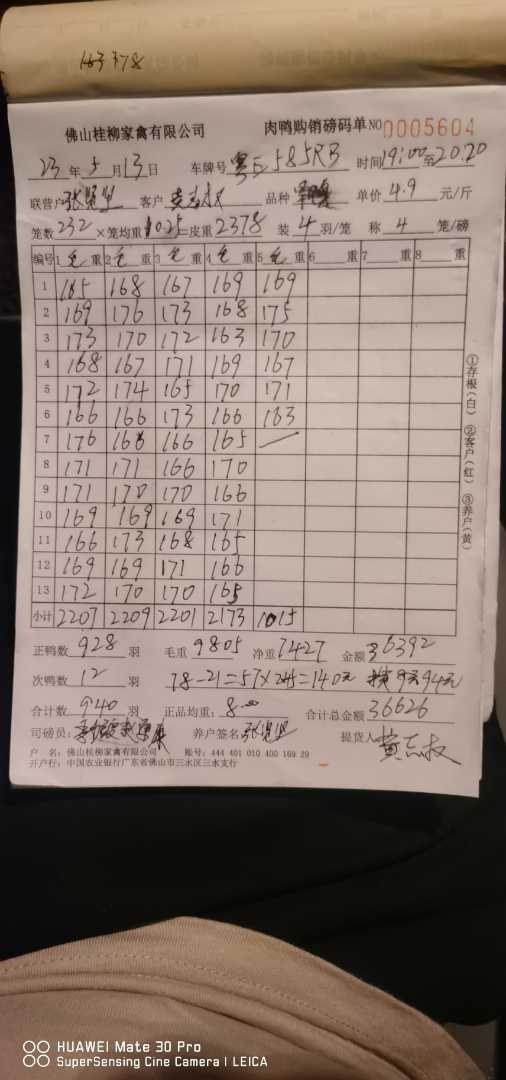 163378
佛山桂柳家禽有限公司 肉鸭购销磅码单 NO 0005604
23年5月13日 车牌号 粤E 585RB 时间 19:00至20:20
联营户 客户 品种 单价 4.9 元/斤
笼数 232 ×笼均重 10.25 =皮重 2378 装 4 羽/笼 称 4 笼/磅
编号 1 毛 重 2 毛 重 3 毛 重 4 毛 重 5 毛 重 6 重 7 重 8 重
1 165 168 167 169 169
2 169 176 173 168 175
3 173 170 172 163 170
4 168 167 171 169 167
5 172 174 165 170 171
6 166 166 173 166 163
7 176 166 165
8 171 171 166 170
9 171 170 170 166
10 169 169 169 171
11 166 173 168 165
12 169 169 171 166
13 172 170 170 165
小计 2207 2209 2201 2173 1015
①存根(白) ②客户(红) ③养户(黄)
正鸭数 928 羽 毛重 9805 净重 7427 金额 36392
次鸭数 12 羽 78-21=57× =140元 94元
合计数 940 羽 正品均重: 8.00 合计总金额 36626
司磅员: 养户签名 提货人 黄志权
户 名: 佛山桂柳家禽有限公司 账号: 444 401 010 400 169 29
开户行: 中国农业银行广东省佛山市三水区三水支行
HUAWEI Mate 30 Pro
SuperSensing Cine Camera | LEICA